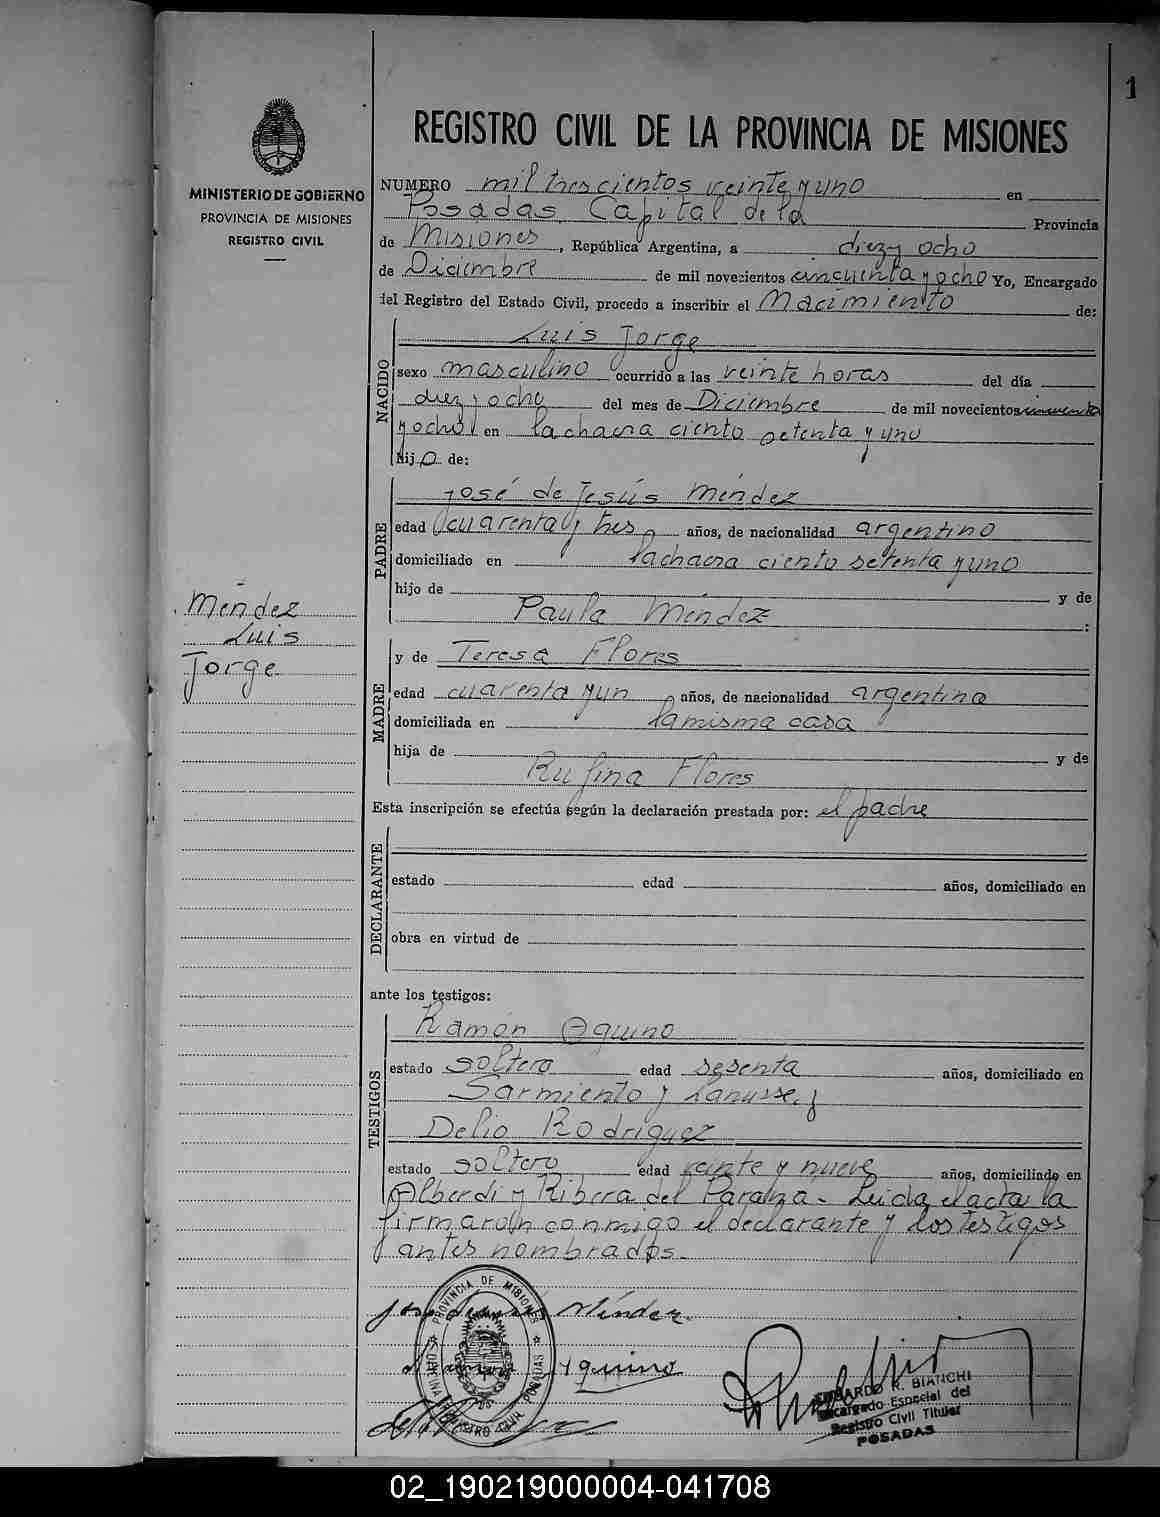 1
REGISTRO CIVIL DE LA PROVINCIA DE MISIONES
MINISTERIO DE GOBIERNO
PROVINCIA DE MISIONES
REGISTRO CIVIL
NUMERO mil trescientos veinte y uno en
Posadas Capital de la Provincia
de Misiones, República Argentina, a diez y ocho
de Diciembre de mil novecientos cincuenta y ocho Yo, Encargado
del Registro del Estado Civil, procedo a inscribir el Nacimiento de:
NACIDO
Luis Jorge
sexo masculino ocurrido a las veinte horas del día
diez y ocho del mes de Diciembre de mil novecientos cincuenta
y ocho en la chacra ciento setenta y uno
hijo de:
PADRE
José de Jesús Méndez
edad cuarenta y tres años, de nacionalidad argentino
domiciliado en la chacra ciento setenta y uno
hijo de y de
Paula Méndez :
Méndez
Luis
Jorge
MADRE
y de Teresa Flores
edad cuarenta y un años, de nacionalidad argentina
domiciliada en la misma casa
hija de y de
Rufina Flores
Esta inscripción se efectúa según la declaración prestada por: el padre
DECLARANTE
estado edad años, domiciliado en
obra en virtud de
ante los testigos:
TESTIGOS
Ramón Aquino
estado soltero edad sesenta años, domiciliado en
Sarmiento y Lanusse y
Delio Rodriguez
estado soltero edad veinte y nueve años, domiciliado en
Alberdi y Ribera del Paraná. Leida el acta la
firmaron conmigo el declarante y los testigos
antes nombrados.
José Jesús Méndez
PROVINCIA DE MISIONES
REGISTRO CIVIL POSADAS
Aquino
R. BIANCHI
Encargado Especial del
Registro Civil Titular
POSADAS
02_190219000004-041708